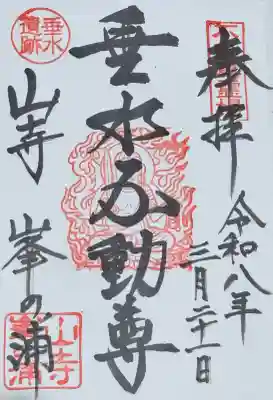 奉拝
令和八年
三月二十一日
垂水不動尊
山寺
峯の浦
垂水
遺跡
山寺
峯浦